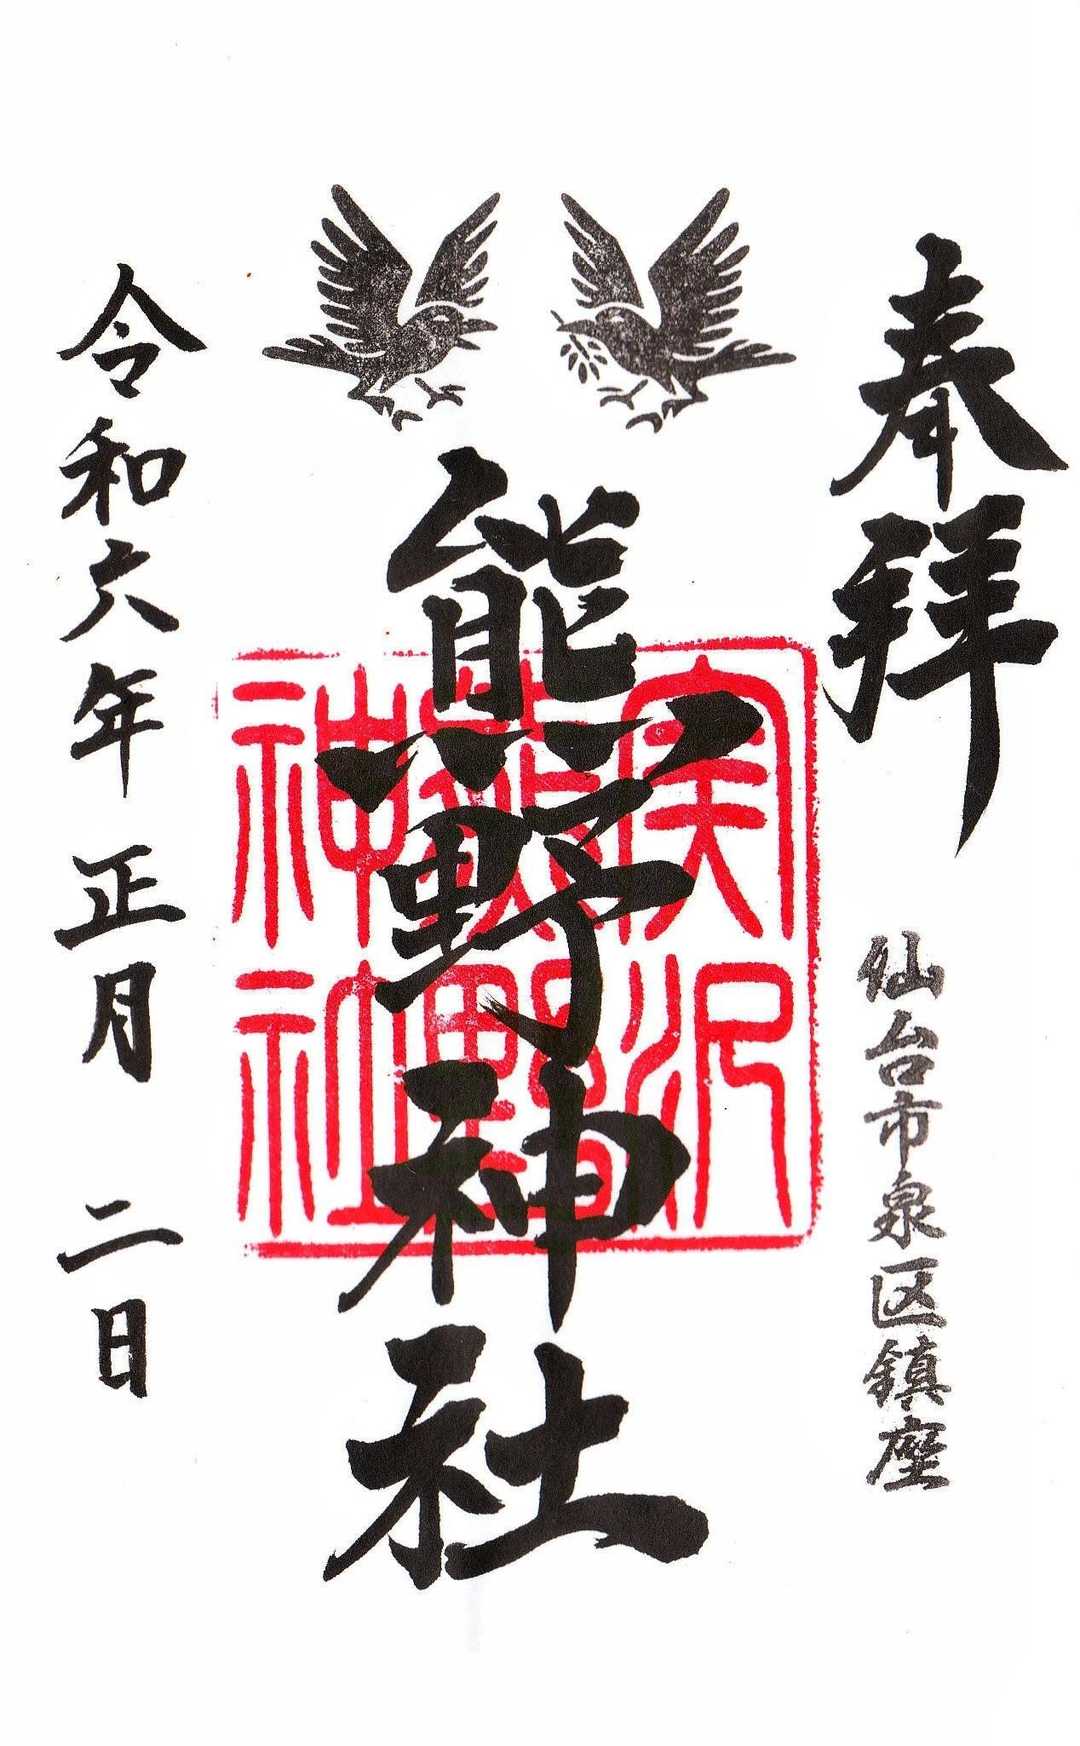 奉拝
仙台市泉区鎮座
熊野神社
実沢
熊野
神社
令和六年正月二日